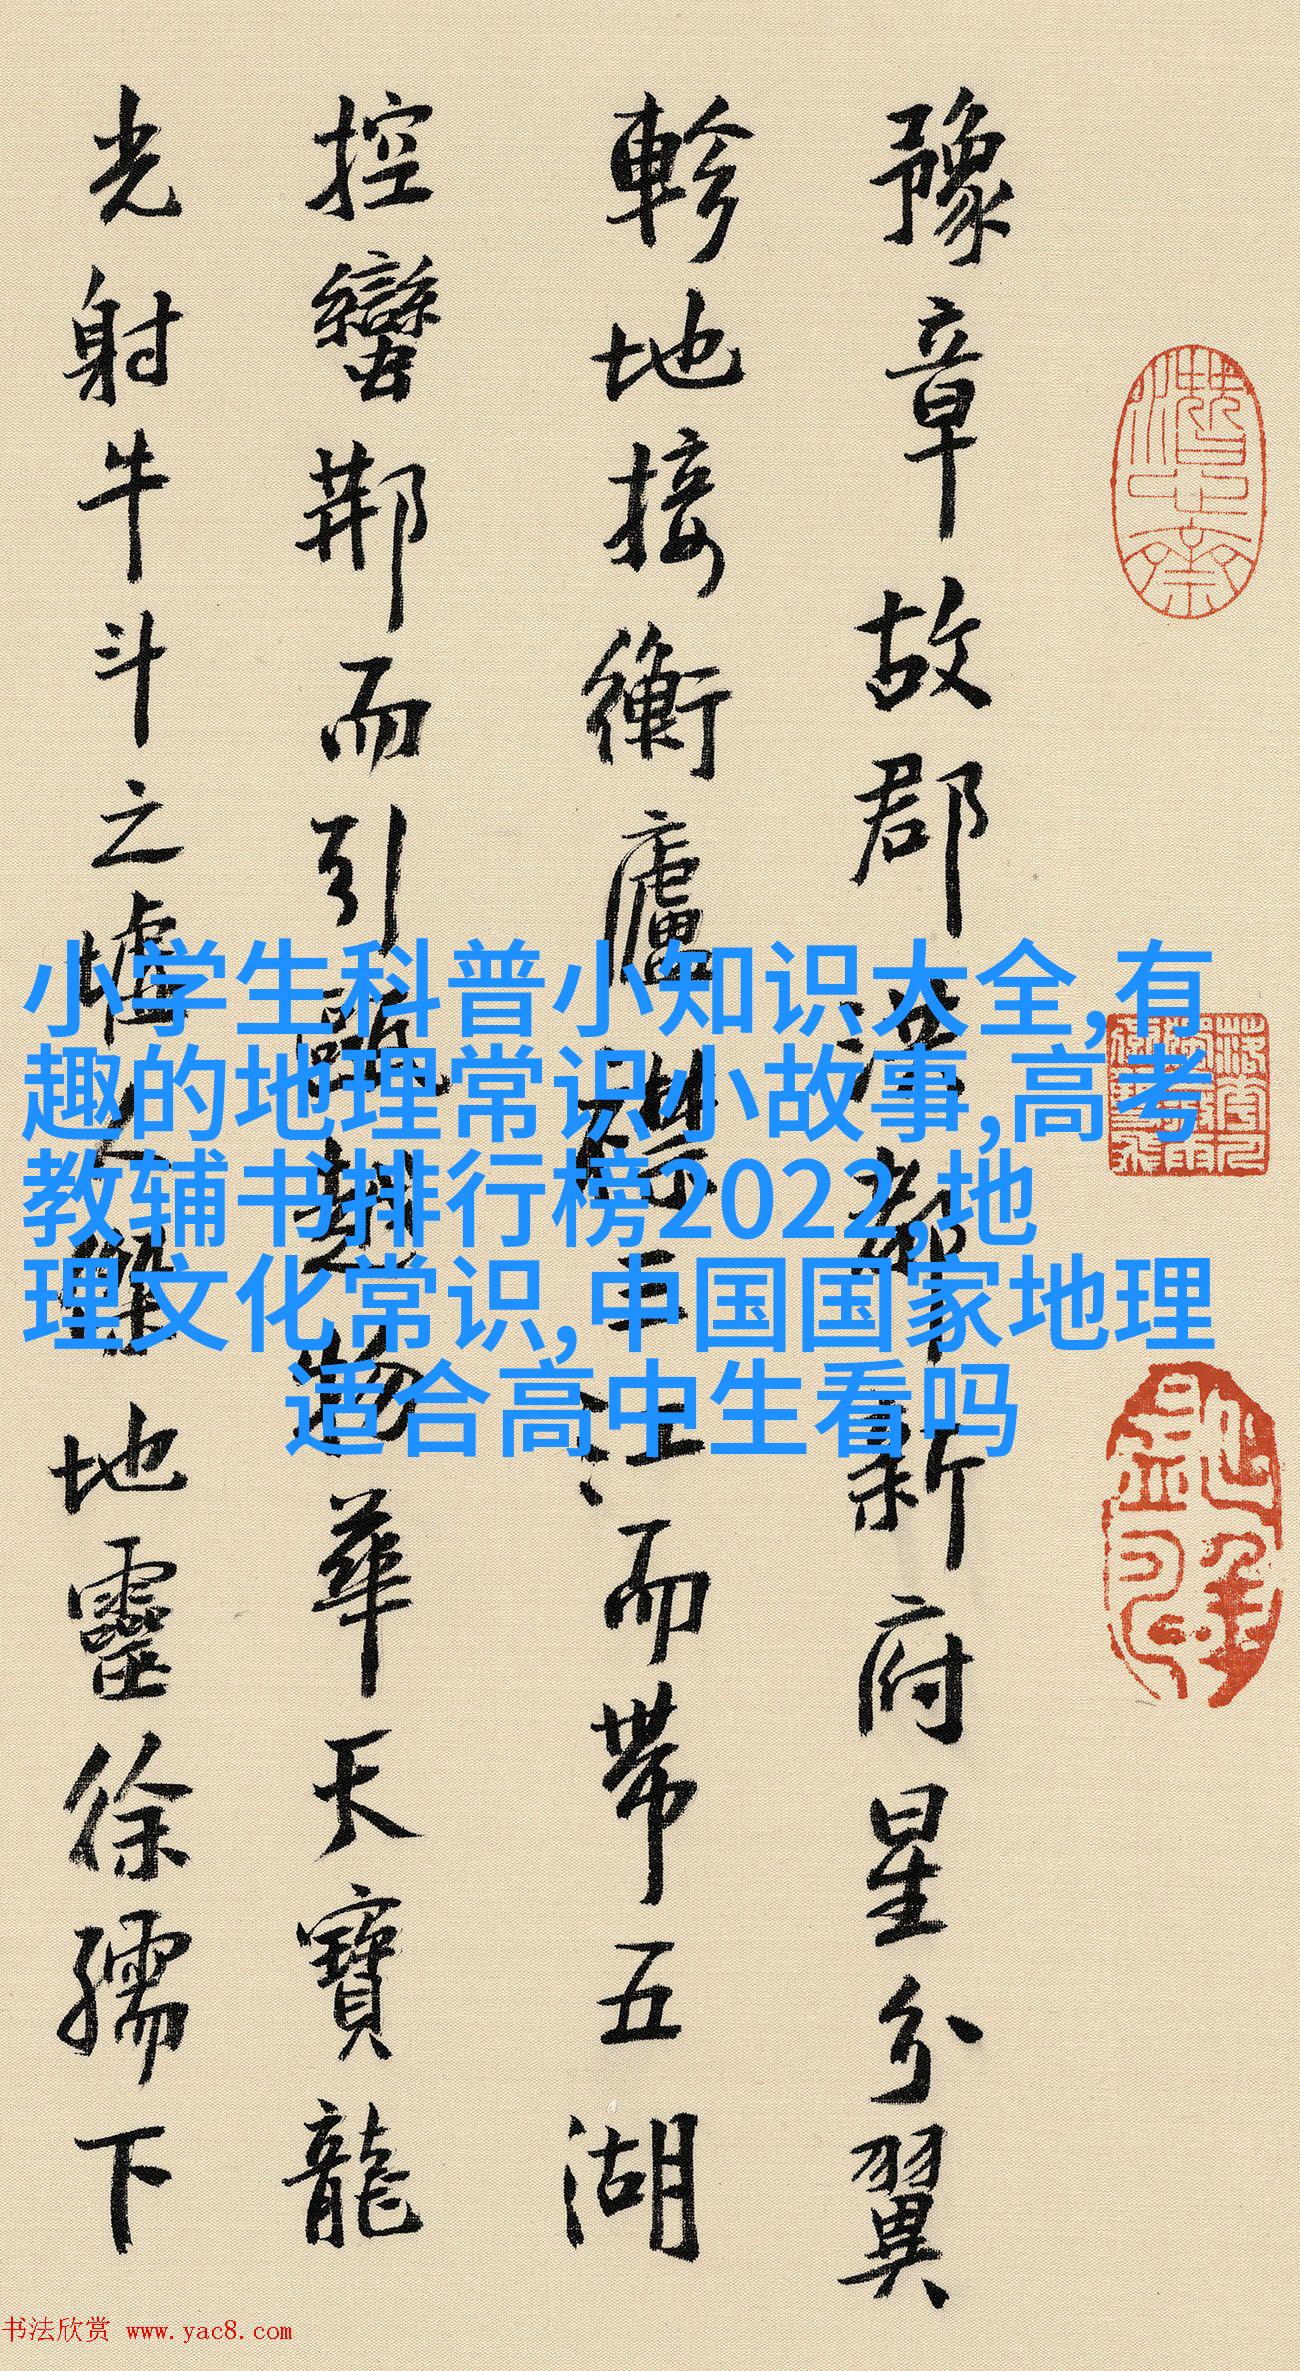 豫章故郡洪都新府星分翼
軫地接衡廬襟三江而帶五湖
控蠻荆而引甌越物華天寶龍
光射牛斗之墟人傑地靈徐孺下
小学生科普小知识大全,有
趣的地理常识小故事,高考
教辅书排行榜2022,地
理文化常识,中国国家地理
适合高中生看吗
书法欣赏 www.yac8.com